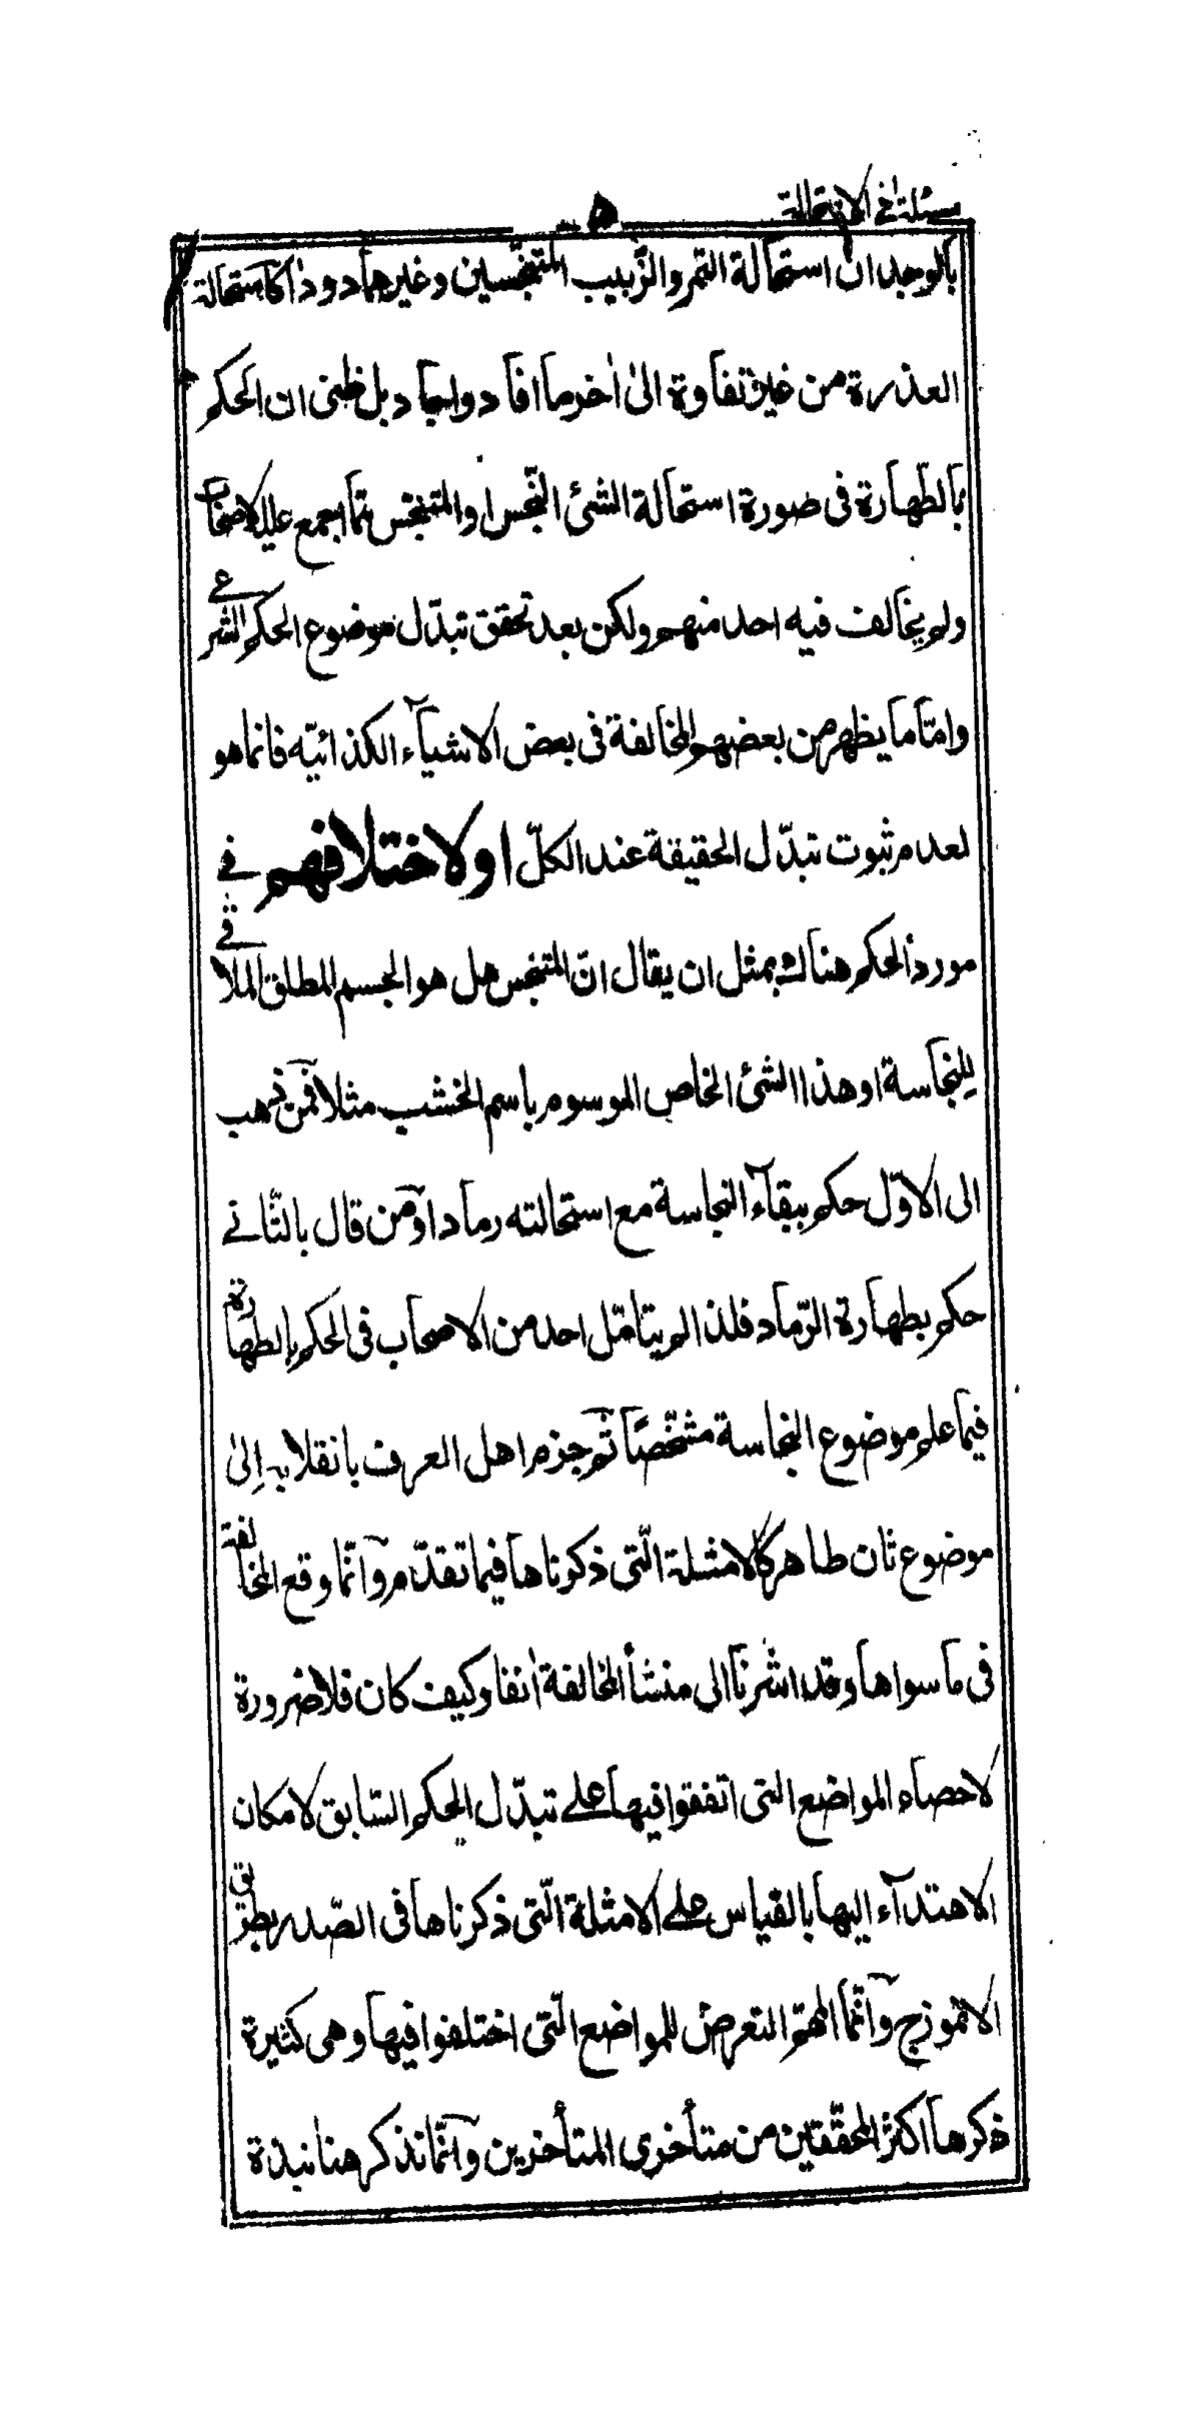 مسئلة في الاستحالة
٥
بالوجدان استحالة التمر والزّبيب المتنجّسين وغيرهما دودا كاستحالة
العذرة من غير تفاوة الىٰ اٰخر ما افاد واجاد بل ظنى ان الحكم
بالطهارة فى صورة استحالة الشئ النّجس او المتنجّس ممّا اجمع عليه الاصحاب
ولم يخالف فيه احد منهم ولكن بعد تحقق تبدّل موضوع الحكم الشرعے
وامّا ما يظهر من بعضهم المخالفة فى بعض الاشيآء الكذائيّه فانما هو
لعدم ثبوت تبدّل الحقيقة عند الكلّ او لاختلافهم فے
مورد الحكم هناك بمثل ان يقال انّ المتنجّس هل هو الجسم المطلق الملاقے
للنجاسة او هذا الشئ الخاص الموسوم باسم الخشب مثلا فمن ذهب
الى الاوّل حكم ببقآء النجاسة مع استحالته رمادا ومن قال بالثّانے
حكم بطهارة الرّماد فلذا لم يتامّل احد من الاصحاب فى الحكم بالطهارة
فيما علم موضوع النجاسة مشخّصًا ثم جزم اهل العرف بانقلابه إلىٰ
موضوع ثان طاهر كالامثلة الّتى ذكرناها فيما تقدّم وانّما وقع المخالفة
فى ما سواها وقد اشرنا الى منشأ المخالفة اٰنفا وكيف كان فلا ضرورة
لاحصاء المواضع التى اتفقوا فيها علے تبدّل الحكم السّابق لامكان
الاهتدآء اليها بالقياس علے الامثلة الّتى ذكرناها فى الصّدر بطريق
الانموزج وانّما المهمّ التعرض للمواضع الّتى اختلفوا فيها وهى كثيرة
ذكرها اكثر المحقّقين من متأخرى المتأخرين وانّما نذكر هنا نبذة